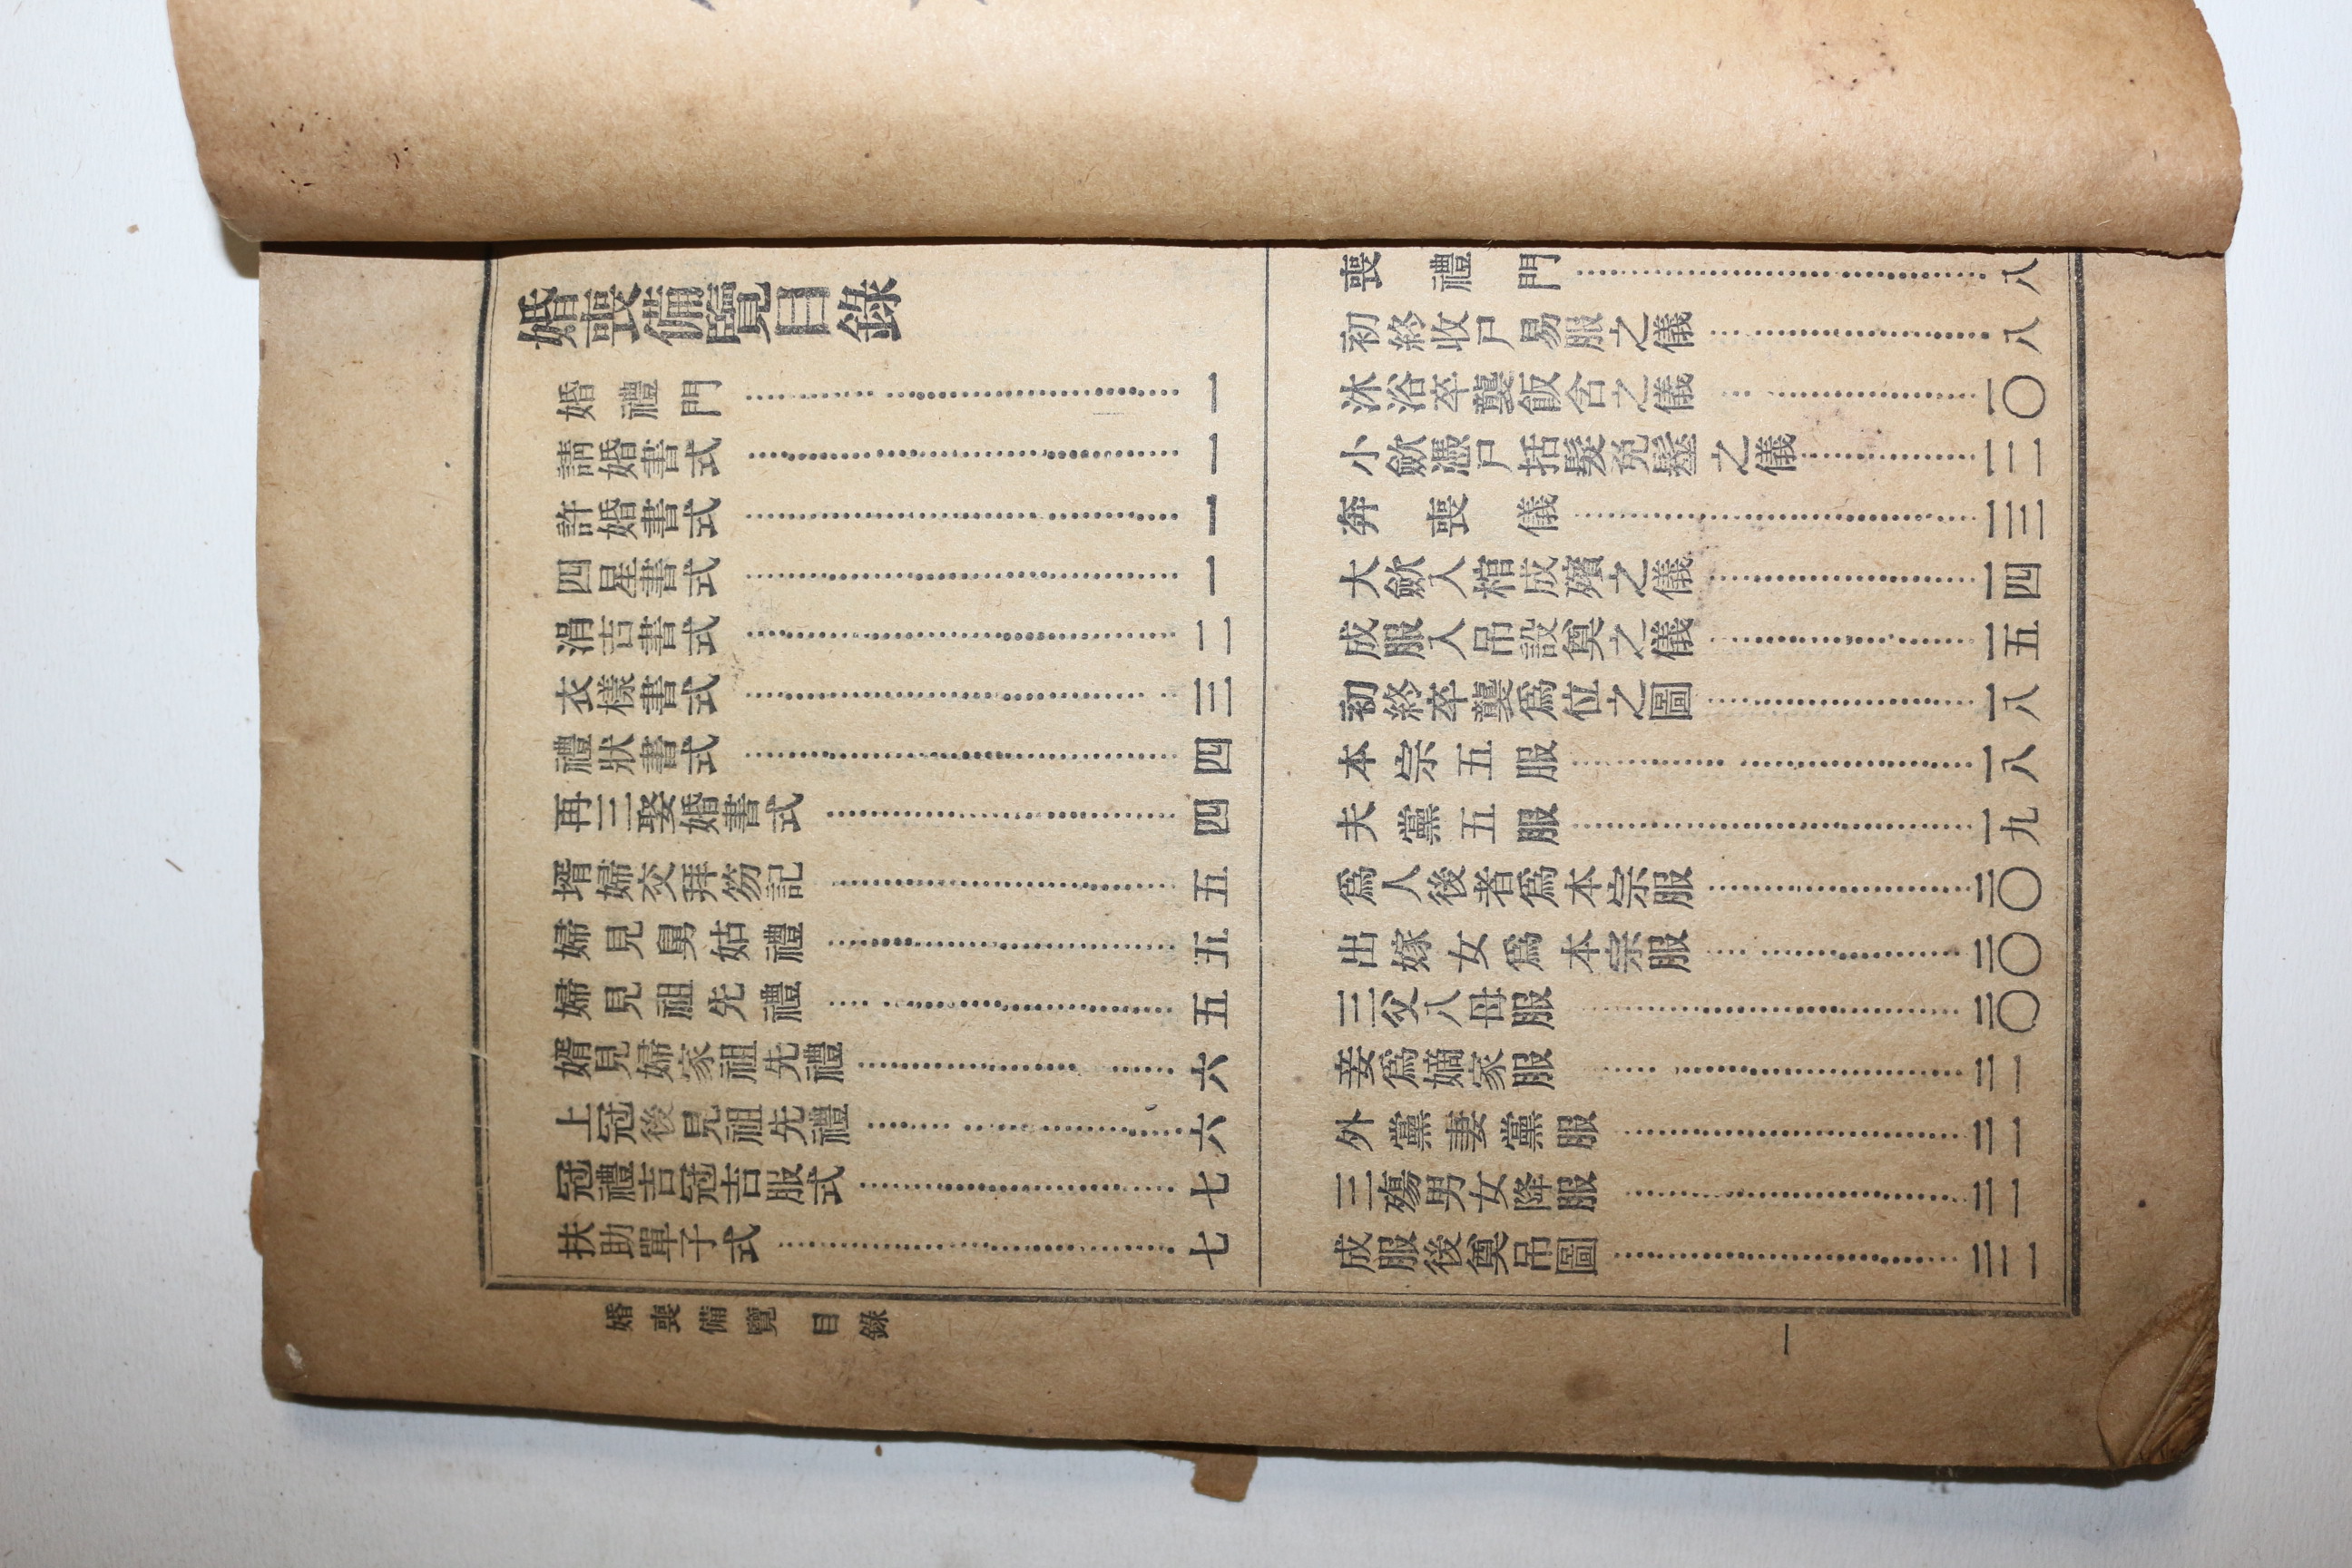 婚喪備覽目錄
婚禮門 一
請婚書式 一
許婚書式 一
四星書式 一
涓吉書式 二
衣樣書式 三
禮狀書式 四
再三娶婚書式 四
壻婦交拜笏記 五
婦見舅姑禮 五
婦見祖先禮 五
婿見婦家祖先禮 六
上冠後見祖先禮 六
冠禮吉冠吉服式 七
扶助單子式 七
喪禮門 八
初終收尸易服之儀 八
沐浴卒襲飯含之儀 一〇
小歛憑尸括髮免髽之儀 一二
奔喪儀 一三
大歛入棺成殯之儀 一四
成服入吊設奠之儀 一五
初終卒襲爲位之圖 一八
本宗五服 一八
夫黨五服 一九
爲人後者爲本宗服 二〇
出嫁女爲本宗服 二〇
三父八母服 二〇
妾爲嫡家服 二一
外黨妻黨服 二一
三殤男女降服 二一
成服後奠吊圖 二二
婚喪備覽 目錄
一